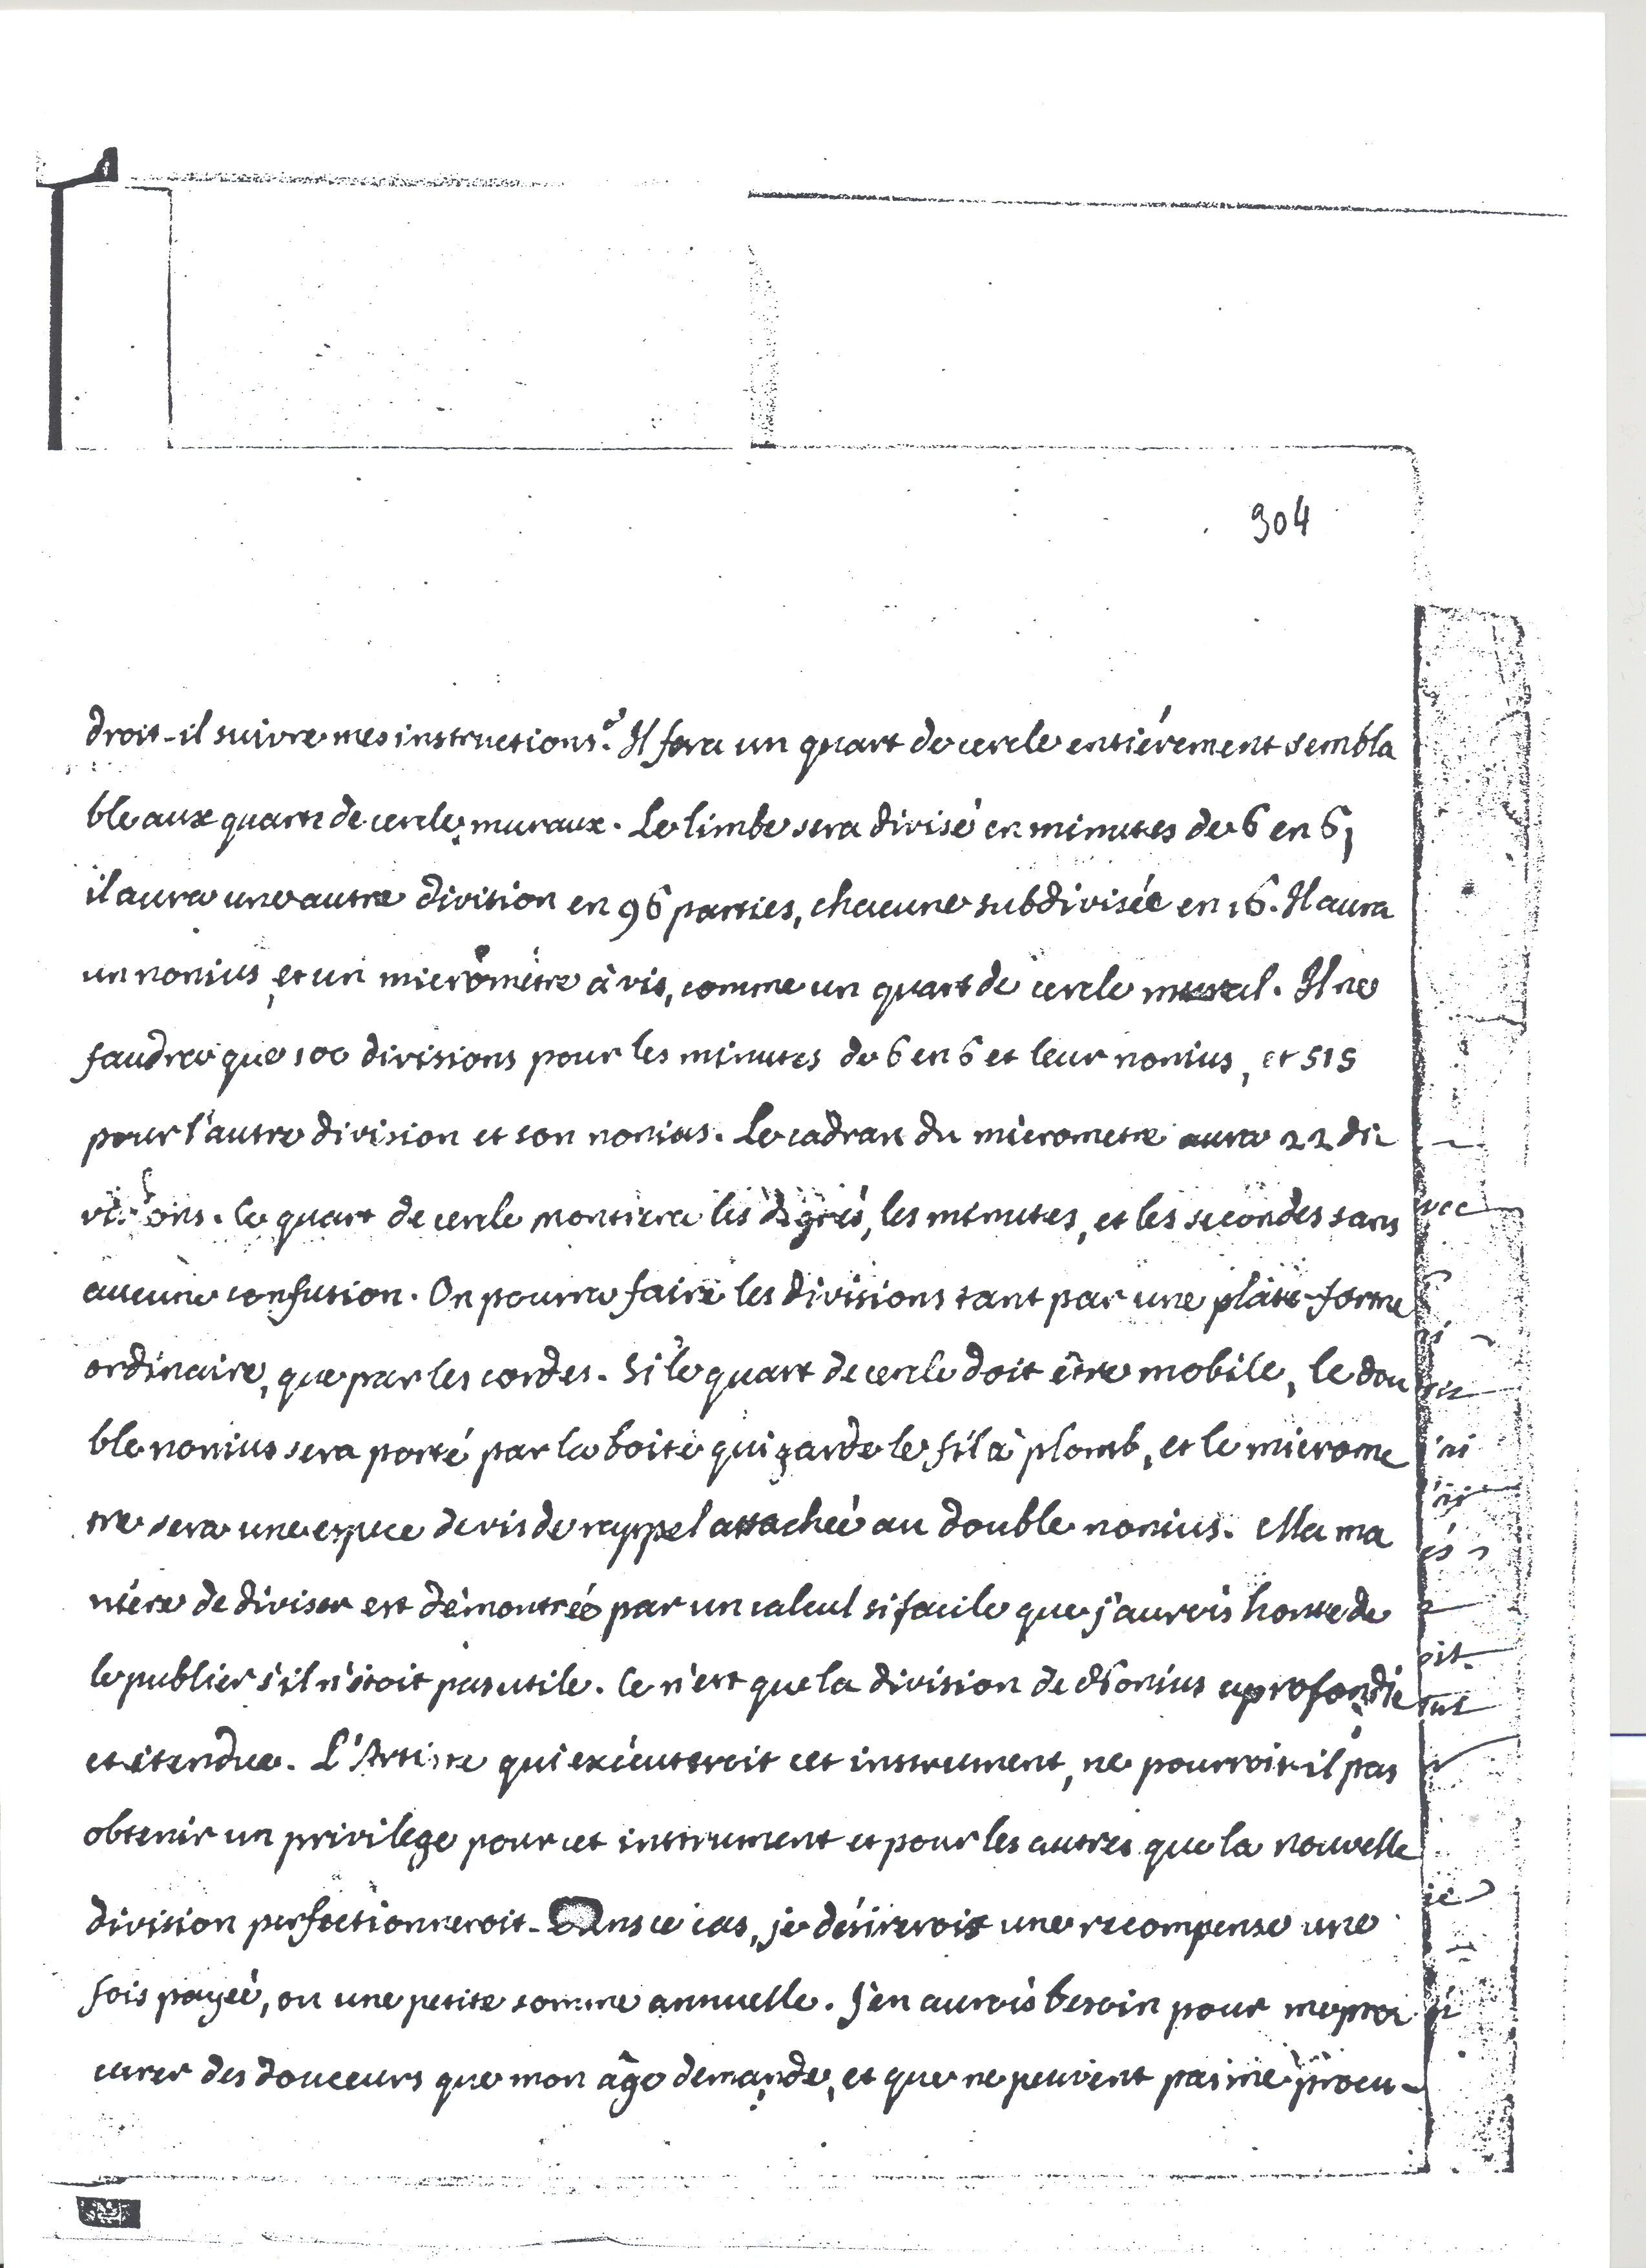 304
droit-il suivre mes instructions? Il fera un quart de cercle entiérement sembla
ble aux quarts de cercle muraux. Le limbe sera divisé en minutes de 6 en 6,
il aura une autre division en 96 parties, chacune subdivisée en 16. Il aura
un nonius, et un micrométre à vis, comme un quart de cercle mural. Il ne
faudra que 100 divisions pour les minutes de 6 en 6 et leur nonius, et 515
pour l'autre division et son nonius. Le cadran du micrometre aura 22 di
visions. Ce quart de cercle montrera les dégrés, les minutes, et les secondes sans
aucune confusion. On pourra faire les divisions tant par une plate-forme
ordinaire, que par les cordes. Si le quart de cercle doit être mobile, le dou
ble nonius sera porté par la boite qui garde le fil à plomb, et le microme
tre sera une espece de vis de rappel attachée au double nonius. Ma ma
niére de diviser est démontrée par un calcul si facile que j'aurois honte de
le publier s'il n'étoit pas utile. Ce n'est que la division de Nonius aprofondie
et étendue. L'Artiste qui exécuteroit cet instrument, ne pourroit-il pas
obtenir un privilege pour cet instrument et pour les autres que la nouvelle
division perfectionneroit. Dans ce cas, je désirerois une recompense une
fois payée, ou une petite somme annuelle. J'en aurois besoin pour me pro
curer des douceurs que mon âge demande, et que ne peuvent pas me procu-